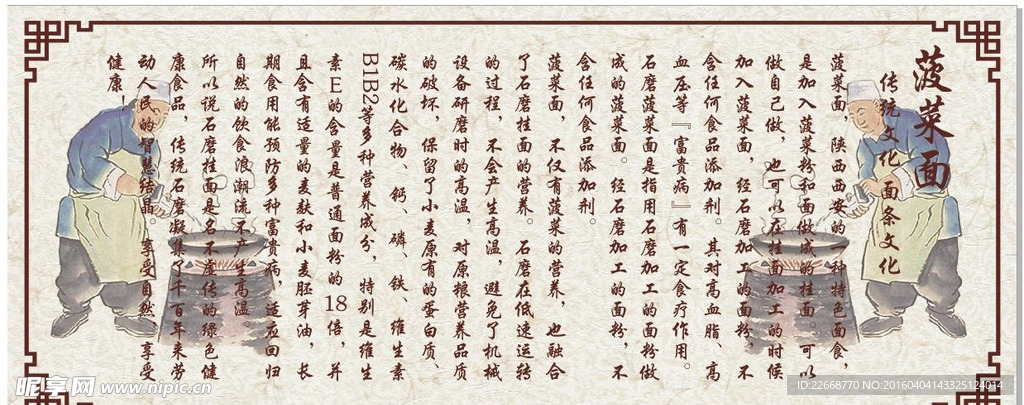 菠菜面
传统文化 面条文化
菠菜面，陕西西安的一种特色面食，
是加入菠菜粉和面做成的挂面。可以
做自己做，也可以在挂面加工的时候
加入菠菜面，经石磨加工的面粉，不
含任何食品添加剂。其对高血脂、高
血压等『富贵病』有一定食疗作用。
石磨菠菜面是指用石磨加工的面粉做
成的菠菜面。经石磨加工的面粉，不
含任何食品添加剂。
菠菜面，不仅有菠菜的营养，也融合
了石磨挂面的营养。石磨在低速运转
的过程，不会产生高温，避免了机械
设备研磨时的高温，对原粮营养品质
的破坏，保留了小麦原有的蛋白质、
碳水化合物、钙、磷、铁、维生素
B1B2等多种营养成分，特别是维生
素E的含量是普通面粉的18倍，并
且含有适量的麦麸和小麦胚芽油，长
期食用能预防多种富贵病，适应回归
自然的饮食浪潮流不产生高温。
所以说石磨挂面是名不虚传的绿色健
康食品，传统石磨凝集了千百年来劳
动人民的智慧结晶。享受自然，享受
健康！
昵享网 www.nipic.cn
ID:22668770 NO:20160404143325124014